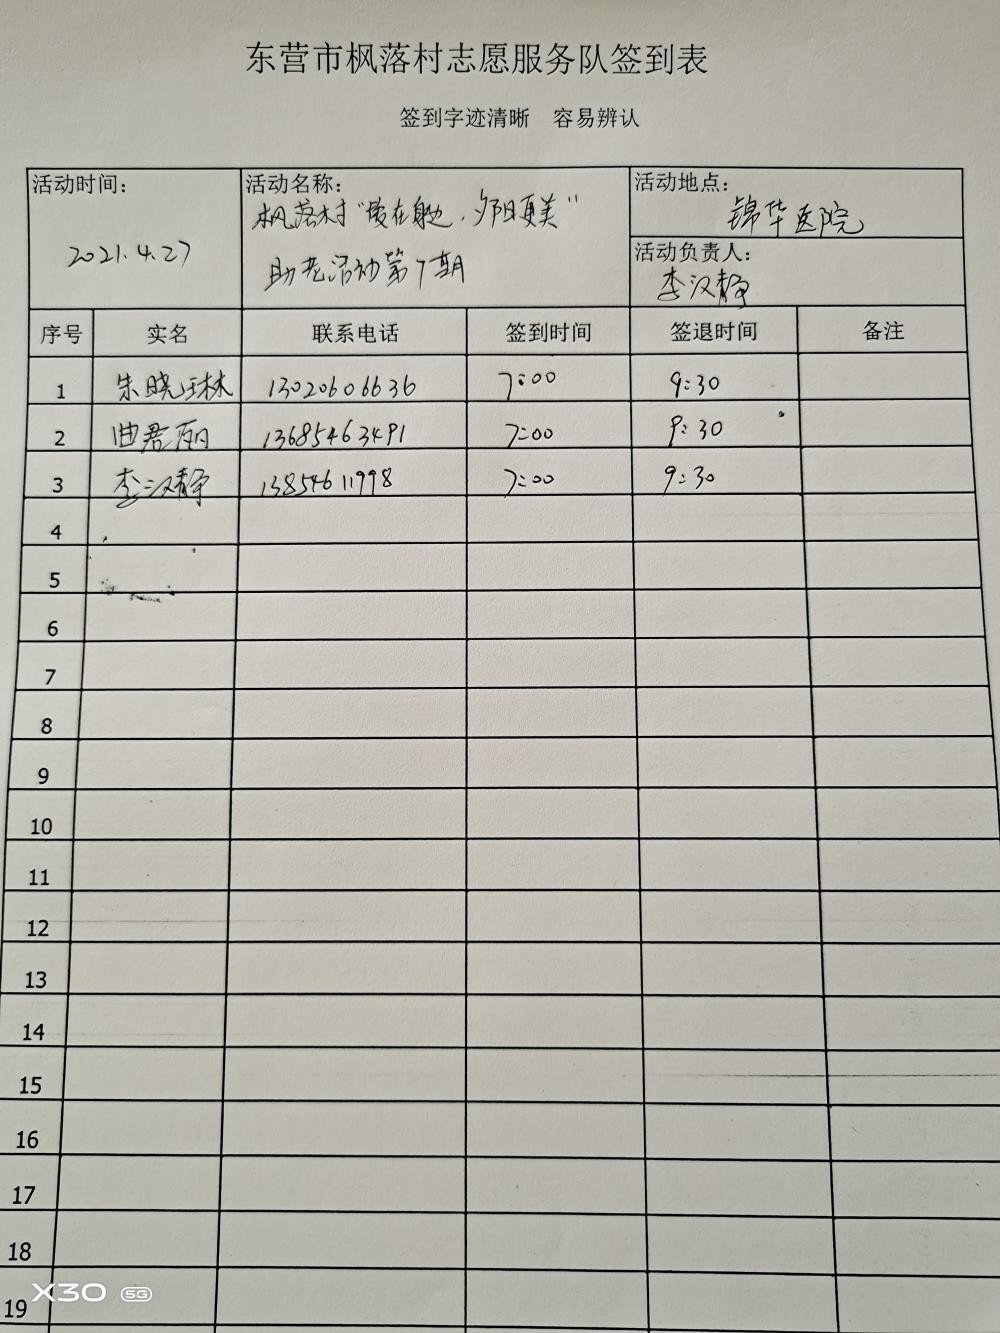 东营市枫落村志愿服务队签到表
签到字迹清晰 容易辨认
活动时间：
2021.4.27
活动名称：
枫落村“爱在身边，夕阳更美”
助老活动第7期
活动地点：
锦华医院
活动负责人：
李汉静
序号 实名 联系电话 签到时间 签退时间 备注
1 朱晓琳 13020606636 7:00 9:30
2 曲君丽 13685463491 7:00 9:30
3 李汉静 13854611998 7:00 9:30
4
5
6
7
8
9
10
11
12
13
14
15
16
17
18
19
X30 5G